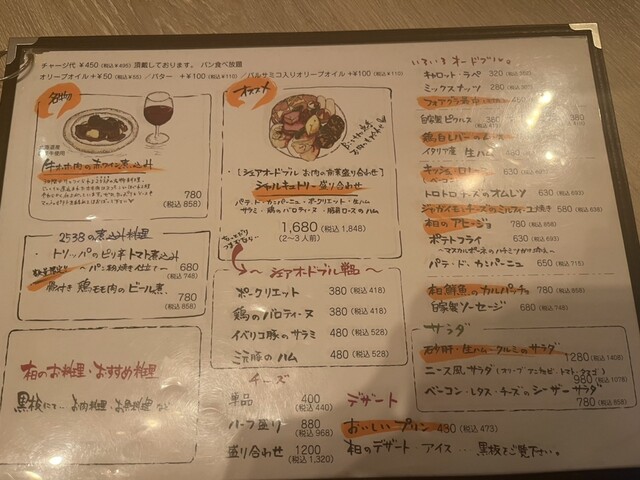 チャージ代 ¥450(税込¥495) 頂戴しております。パン食べ放題
オリーブオイル+¥50(税込¥55) / バター +¥100(税込¥110) / バルサミコ入りオリーブオイル+¥100(税込¥110)
名物
牛ホホ肉の赤ワイン煮込み
780
(税込 858)
2538の煮込み料理
・トリッパのピリ辛トマト煮込み
〜パン粉焼き仕立て〜 680
(税込 748)
数量限定
骨付き鶏もも肉のビール煮
780
(税込 858)
本日のお料理・おすすめ料理
黒板にて…お肉料理・お魚料理など
オススメ
[シェアオードブル お肉の前菜盛り合わせ]
シャルキュトリー盛り合わせ
パテ・ド・カンパーニュ・ポークリエット・生ハム
サラミ・鶏のバロティーヌ・豚肩ロースのハム
1,680 (税込 1,848)
(2〜3人前)
〜シェアオードブル単品〜
ポークリエット 380 (税込 418)
鶏のバロティーヌ 380 (税込 418)
イベリコ豚のサラミ 480 (税込 528)
三元豚のハム 480 (税込 528)
チーズ
単品 400
(税込 440)
ハーフ盛り 880
(税込 968)
盛り合わせ 1200
(税込 1,320)
デザート
おいしいプリン 430 (税込 473)
本日のデザート・アイス…黒板をご覧下さい。
いろいろオードブル。
キャロット・ラペ 320
ミックスナッツ 280
フォアグラ最中
自家製ピクルス 380
鶏白レバーの
イタリア産 生ハム
キッシュ・ロレーヌ
ベーコン
トロトロチーズのオムレツ 630 (税込 693)
ジャガイモとチーズのミルフィーユ焼き 580 (税込 638)
本日のアヒージョ 780 (税込 858)
ポテトフライ 630 (税込 693)
〜マスカルポーネのハチミツがけ添え〜
パテ・ド・カンパーニュ 650 (税込 715)
本日鮮魚のカルパッチョ 780 (税込 858)
自家製ソーセージ 680 (税込 748)
サラダ
砂肝・生ハム・クルミのサラダ
1280 (税込 1408)
ニース風サラダ
980 (税込 1078)
ベーコン・レタス・チーズのシーザーサラダ
780 (税込 858)